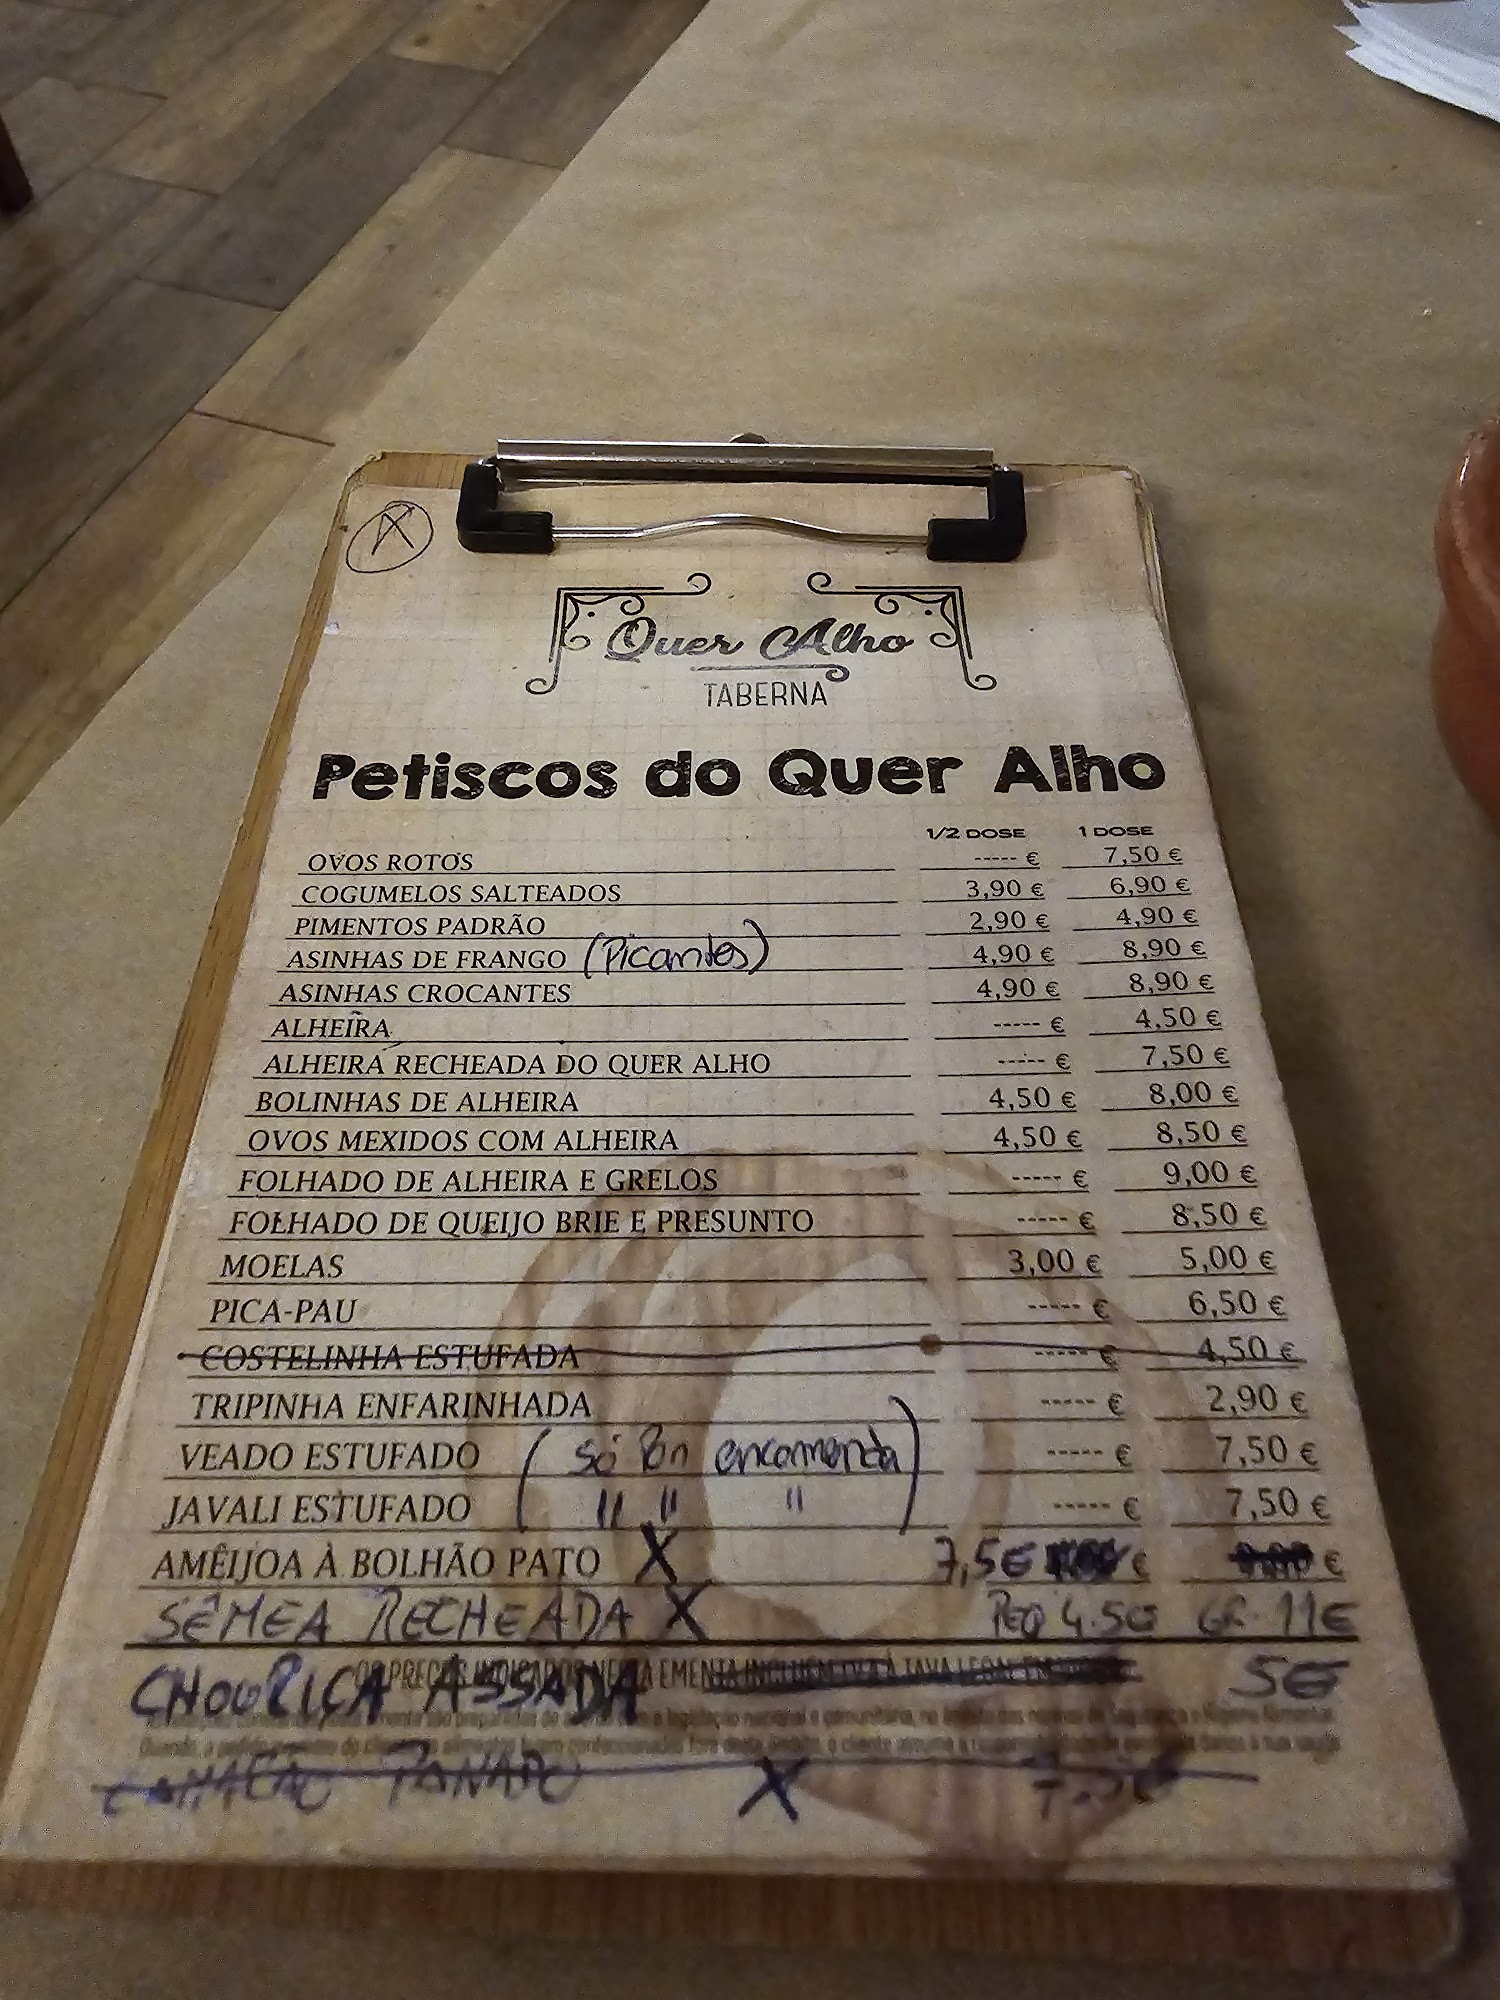 Quer Alho
TABERNA
Petiscos do Quer Alho
1/2 DOSE 1 DOSE
OVOS ROTOS ----- € 7,50 €
COGUMELOS SALTEADOS 3,90 € 6,90 €
PIMENTOS PADRÃO 2,90 € 4,90 €
ASINHAS DE FRANGO (Picantes) 4,90 € 8,90 €
ASINHAS CROCANTES 4,90 € 8,90 €
ALHEIRA ----- € 4,50 €
ALHEIRA RECHEADA DO QUER ALHO ----- € 7,50 €
BOLINHAS DE ALHEIRA 4,50 € 8,00 €
OVOS MEXIDOS COM ALHEIRA 4,50 € 8,50 €
FOLHADO DE ALHEIRA E GRELOS ----- € 9,00 €
FOLHADO DE QUEIJO BRIE E PRESUNTO ----- € 8,50 €
MOELAS 3,00 € 5,00 €
PICA-PAU ----- € 6,50 €
COSTELINHA ESTUFADA ----- € 4,50 €
TRIPINHA ENFARINHADA ----- € 2,90 €
VEADO ESTUFADO (só Por encomenda) ----- € 7,50 €
JAVALI ESTUFADO " " " ----- € 7,50 €
AMÊIJOA À BOLHÃO PATO X 7,5€ € €
SÊMEA RECHEADA X PEQ 4.5€ GR. 11€
CHOURIÇA ASSADA 5€
OS PREÇOS INDICADOS NESTA EMENTA INCLUEM IVA À TAXA LEGAL
PANADO X